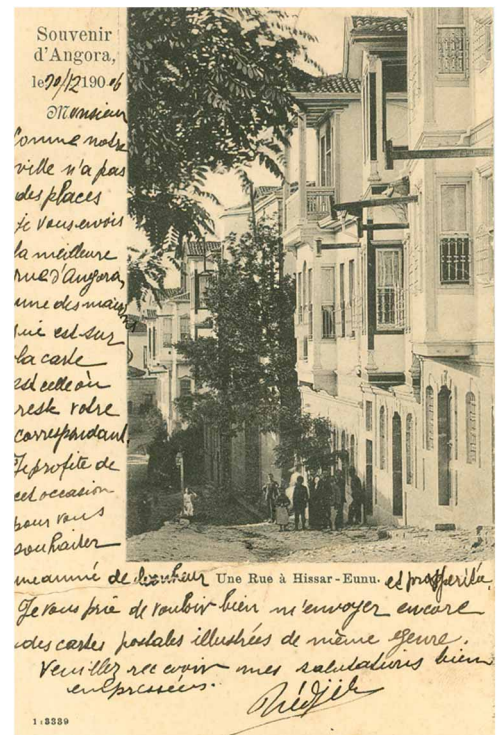 Souvenir
d'Angora,
le 20/12 1906
Monsieur
Comme notre
ville n'a pas
des places
je vous envois
la meilleure
rue d'Angora,
une des maisons
qui est sur
la carte
est celle où
reste votre
correspondant.
Je profite de
cet occasion
pour vous
souhaiter
une année de bonheur et prosperité.
Une Rue à Hissar-Eunu.
Je vous prie de vouloir bien m'envoyer encore
des cartes postales illustrées de même genre.
Veuillez recevoir mes salutations bien
empressées.
1:3339